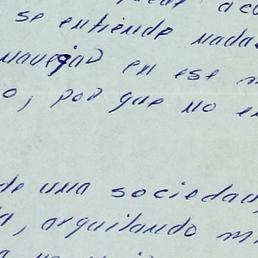 se entiende nada
navegar en ese
o, por que no e
de una sociedad
a, arquilando m